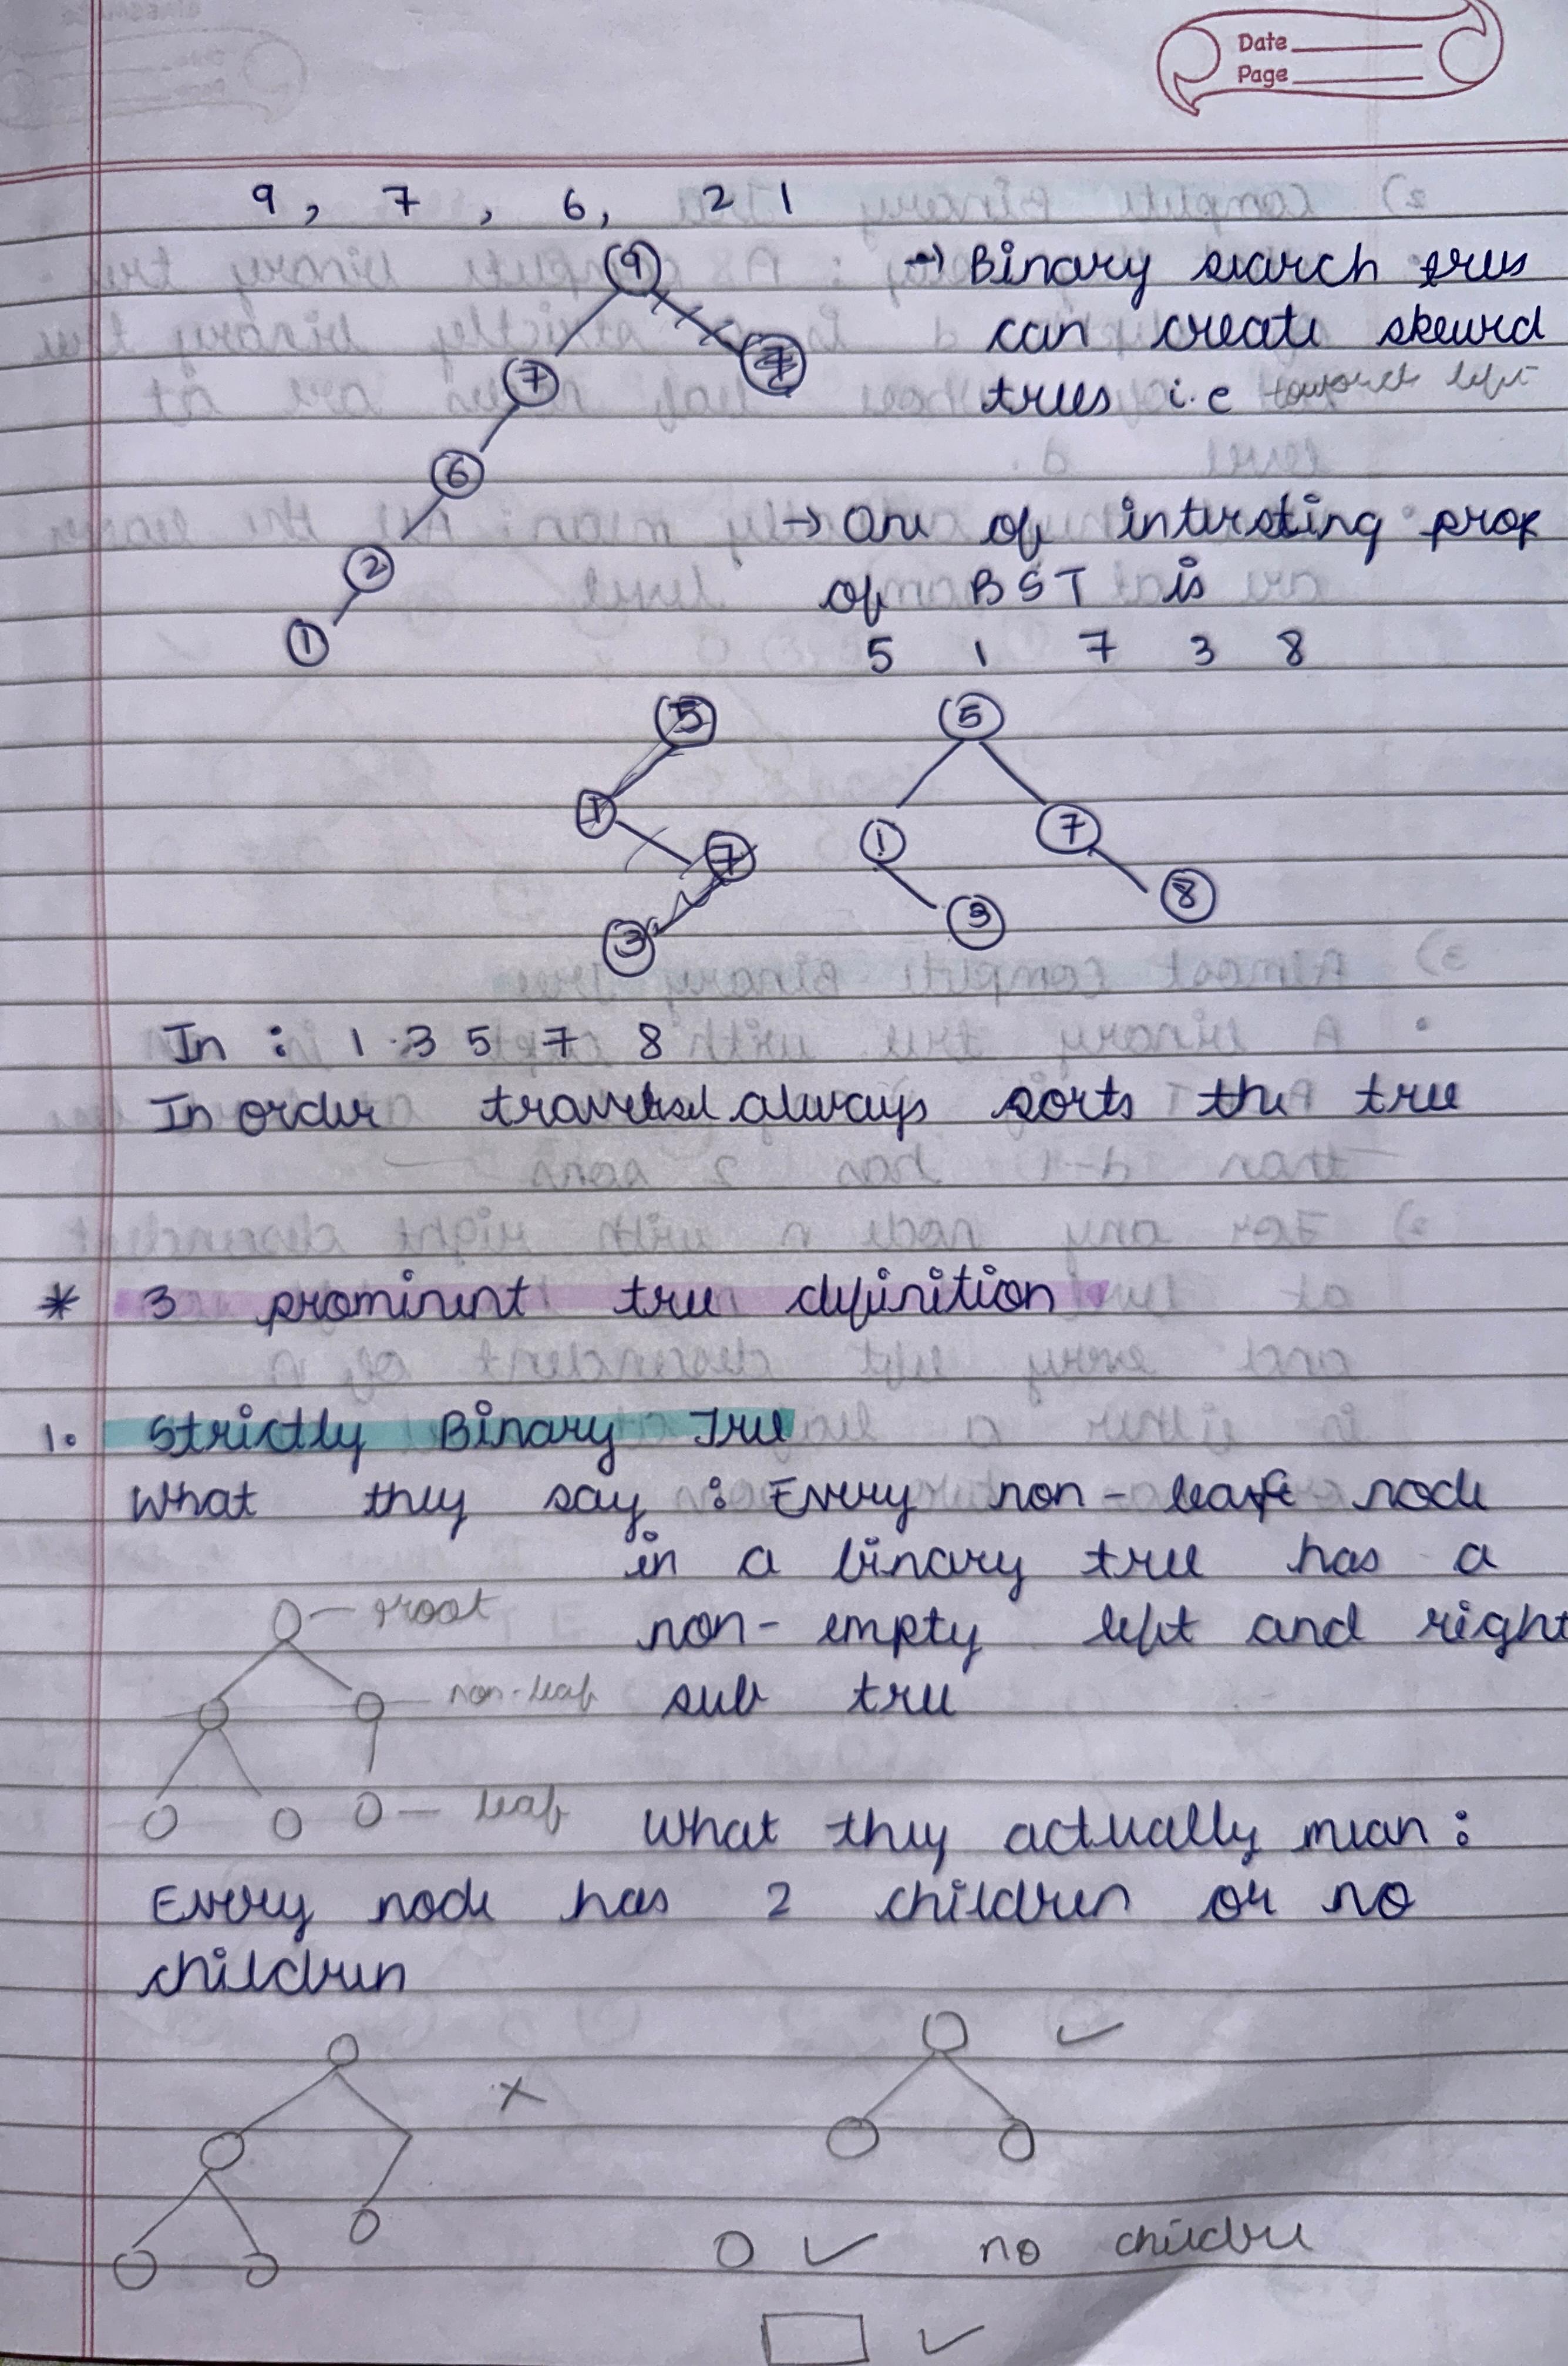 Date
Page
9, 7, 6, 2 1
9
7
6
2
1
→ Binary search trees
can create skewed
trees i.e towards left
→ One of intersting prop
of BST is
5 1 7 3 8
5
1 7
3
5
1 7
3 8
In : 1 3 5 7 8
In order traversal always sorts the tree
* 3 prominent tree definition
1. Strictly Binary Tree
What they say : Every non-leaf node
in a binary tree has a
root
non-empty left and right
non-leaf
sub tree
leaf
What they actually mean :
Every node has 2 children or no
children
no childre